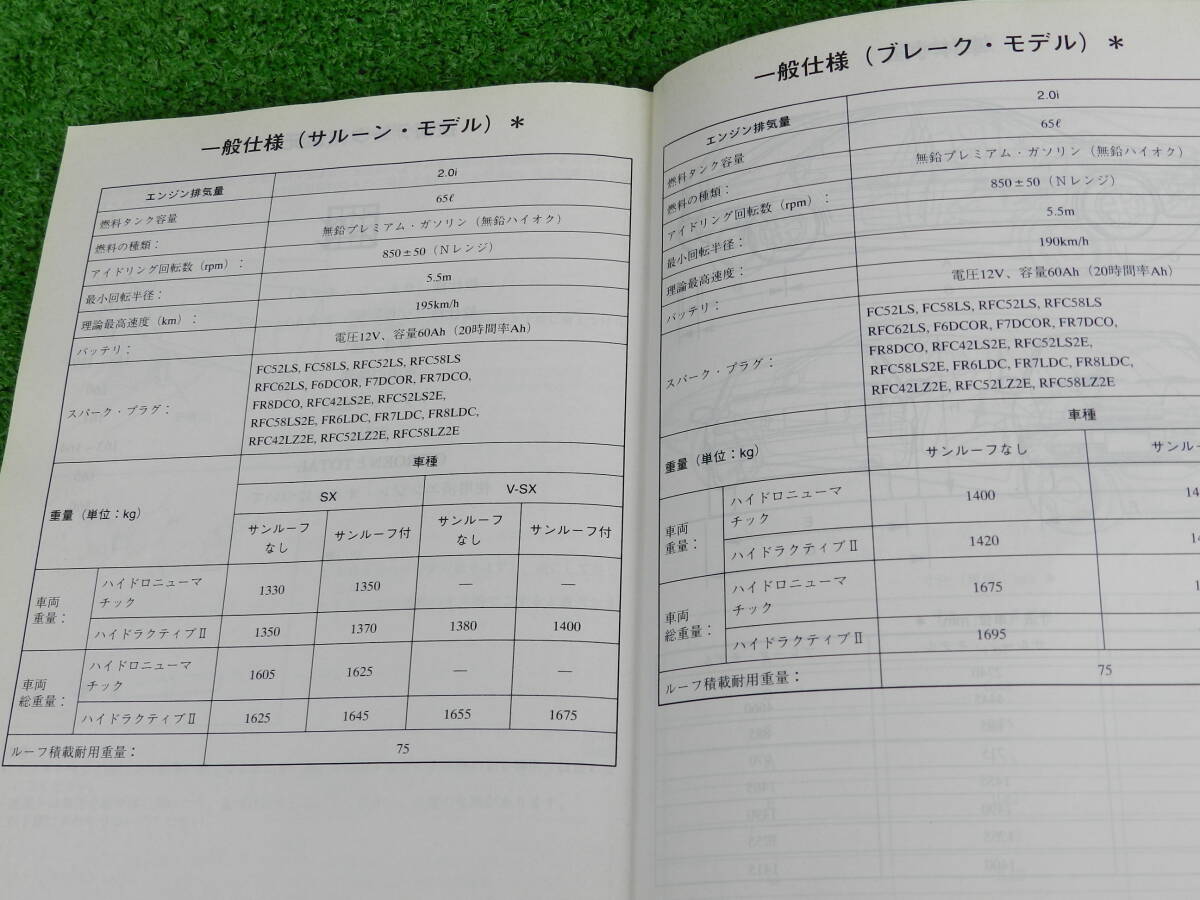 一般仕様（サルーン・モデル）＊
エンジン排気量 2.0i
燃料タンク容量 65ℓ
燃料の種類： 無鉛プレミアム・ガソリン（無鉛ハイオク）
アイドリング回転数（rpm）： 850±50（Nレンジ）
最小回転半径： 5.5m
理論最高速度（km）： 195km/h
バッテリ： 電圧12V、容量60Ah（20時間率Ah）
スパーク・プラグ：
FC52LS, FC58LS, RFC52LS, RFC58LS
RFC62LS, F6DCOR, F7DCOR, FR7DCO,
FR8DCO, RFC42LS2E, RFC52LS2E,
RFC58LS2E, FR6LDC, FR7LDC, FR8LDC,
RFC42LZ2E, RFC52LZ2E, RFC58LZ2E
重量（単位：kg）
車種
SX V-SX
サンルーフなし サンルーフ付 サンルーフなし サンルーフ付
車両重量：
ハイドロニューマチック 1330 1350 — —
ハイドラクティブⅡ 1350 1370 1380 1400
車両総重量：
ハイドロニューマチック 1605 1625 — —
ハイドラクティブⅡ 1625 1645 1655 1675
ルーフ積載耐用重量： 75
一般仕様（ブレーク・モデル）＊
エンジン排気量 2.0i
燃料タンク容量 65ℓ
燃料の種類： 無鉛プレミアム・ガソリン（無鉛ハイオク）
アイドリング回転数（rpm）： 850±50（Nレンジ）
最小回転半径： 5.5m
理論最高速度： 190km/h
バッテリ： 電圧12V、容量60Ah（20時間率Ah）
スパーク・プラグ：
FC52LS, FC58LS, RFC52LS, RFC58LS
RFC62LS, F6DCOR, F7DCOR, FR7DCO,
FR8DCO, RFC42LS2E, RFC52LS2E,
RFC58LS2E, FR6LDC, FR7LDC, FR8LDC,
RFC42LZ2E, RFC52LZ2E, RFC58LZ2E
重量（単位：kg）
車種
サンルーフなし サンルー
車両重量：
ハイドロニューマチック 1400 14
ハイドラクティブⅡ 1420
車両総重量：
ハイドロニューマチック 1675
ハイドラクティブⅡ 1695
ルーフ積載耐用重量： 75